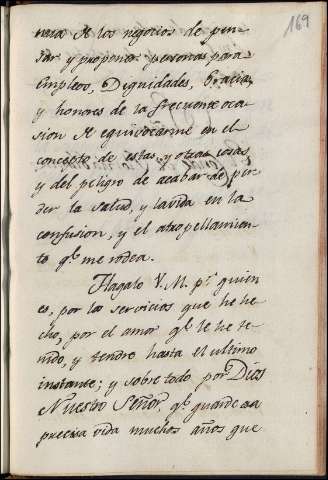 169
nera de los negocios de pen-
sar y proponer personas para
empleos, Dignidades, Gracias,
y honores de la frecuente oca-
sion de equivocarme en el
concepto de estas y otras cosas
y del peligro de acabar de per-
der la salud, y la vida en la
confusion, y el atropellamien-
to q.e me rodea.
Hagalo V. M. p.r quien
es, por los servicios que he he-
cho, por el amor q.e le he te-
nido, y tendre hasta el ultimo
instante; y sobre todo por Dios
Nuestro Señor, q.e guarde esa
preciosa vida muchos años que